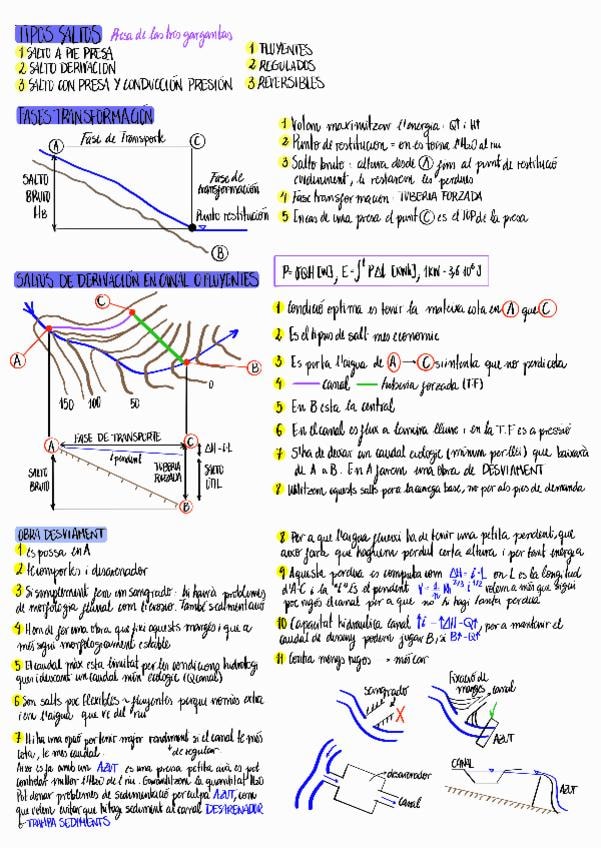 TIPOS SALTOS Presa de las tres gargantas
1 SALTO A PIE PRESA
2 SALTO DERIVACIÓN
3 SALTO CON PRESA Y CONDUCCIÓN PRESIÓN
1 FLUYENTES
2 REGULADOS
3 REVERSIBLES
FASES TRANSFORMACIÓN
A
Fase de Transporte
C
SALTO
BRUTO
HB
Fase de
transformación
Punto restitución
B
1 Volem maximitzar l'energia: Q↑ i H↑
2 Punto de restitución = on es torna l'H2O al riu
3 Salto bruto: altura desde A fins al punt de restitució
i restarem les perdues
4 Fase transformación: TUBERIA FORZADA
5 En cas de una presa el punt C es el de la presa
SALTOS DE DERIVACIÓN EN CANAL O FLUYENTES
C
A
B
150 100 50 0
A FASE DE TRANSPORTE C
i pendent
ΔH=i·L
SALTO
BRUTO
TUBERIA
FORZADA
SALTO
ÚTIL
B
1 Condició optima es tenir la mateixa cota en A que C
2 Es el tipus de salt mes economic
3 Es porta l'aigua de A → C si intenta que no perdi cota
4 canal tuberia forzada (T.F)
5 En B esta la central
6 En el canal es flux a lamina lliure i en la T.F es a pressió
7 S'ha de deixar un caudal ecologic (minim per llei) que baixará
de A a B. En A farem una obra de DESVIAMENT
8 Utilitzem aquests salts para la carrega base, no per als pics de demanda
OBRA DESVIAMENT
1 Es possa en A
2 Te comportes i desarenador
3 Si simplement fem un sangrado: hi haurá problemes
de morfologia fluvial com l'erosió. També sedimentació
4 Hem de fer una obra que fixi aquests marges i que a
més sigui morfologicament estable
5 El caudal máx esta limitat per les condicions hidrologi
ques i descomt de caudal mínim ecologic (Qcanal)
6 Son salts poc flexibles → fluyentes perque només entra
l'aigua que ve del riu
7 Hi ha una opció per tenir major rendiment si el canal te més
cota, te més caudal. → de regular
Aixo es fa amb un AZUT es una presa petita
controlar millor l'H2O de l riu. Garantitzem la quantitat H2O
Pot donar problemes de sedimentació per culpa AZUT, com
que volem evitar que hi hagi sediment al canal DESARENADOR
o TRAMPA SEDIMENTS
8 Per a que l'aigua flueixi ha de tenir una petita pendent, que
aixo fará que haguem perdut certa altura i per tant energia
9 Aquesta perdua es computa com ΔH=i·L on L es la longitud
d'A-C i la "i" es el pendent
per a que no hi hagi tanta perdua
10 Capacitat hidraulica canal ↑i → ↑ΔH → Q↑, per a mantenir el
caudal de disseny podem jugar B, si B↑ → Q↑
11 Contra menys rugós → més car
sangrado
X
Fixació de
marges, canal
AZUT
desarenador
canal
CANAL
AZUT